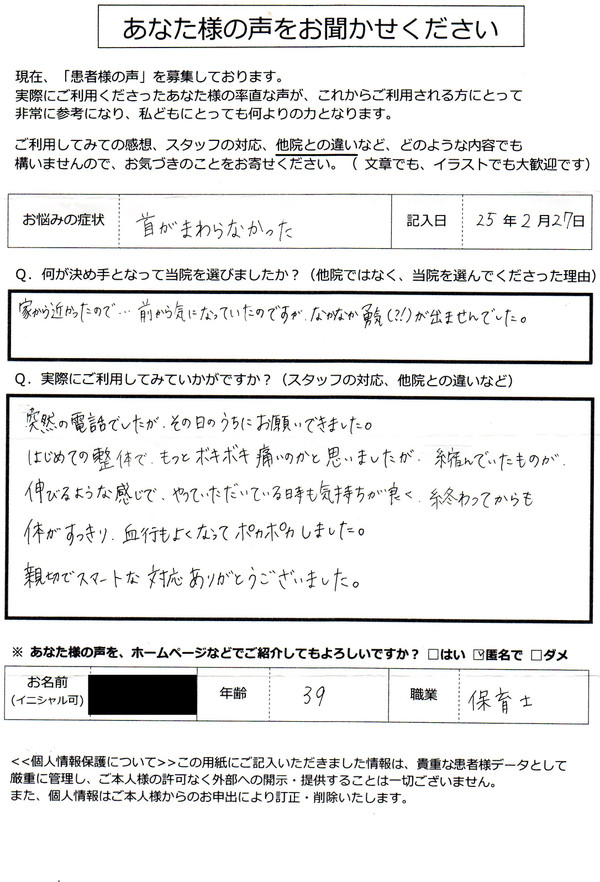 あなた様の声をお聞かせください
現在、「患者様の声」を募集しております。
実際にご利用くださったあなた様の率直な声が、これからご利用される方にとって
非常に参考になり、私どもにとっても何よりの力となります。
ご利用してみての感想、スタッフの対応、他院との違いなど、どのような内容でも
構いませんので、お気づきのことをお寄せください。（ 文章でも、イラストでも大歓迎です）
お悩みの症状 首がまわらなかった 記入日 25 年 2 月 27日
Q．何が決め手となって当院を選びましたか？（他院ではなく、当院を選んでくださった理由）
家から近かったので… 前から気になっていたのですが、なかなか勇気(?!)が出ませんでした。
Q．実際にご利用してみていかがですか？（スタッフの対応、他院との違いなど）
突然の電話でしたが、その日のうちにお願いできました。
はじめての整体で、もっとボキボキ痛いのかと思いましたが、縮んでいたものが、
伸びるような感じで、やっていただいている時も気持ちが良く、終わってからも
体がすっきり、血行もよくなってポカポカしました。
親切でスマートな対応ありがとうございました。
※ あなた様の声を、ホームページなどでご紹介してもよろしいですか？ □はい ☑匿名で □ダメ
お名前
(イニシャル可) 年齢 39 職業 保育士
<<個人情報保護について>>この用紙にご記入いただきました情報は、貴重な患者様データとして
厳重に管理し、ご本人様の許可なく外部への開示・提供することは一切ございません。
また、個人情報はご本人様からのお申出により訂正・削除いたします。